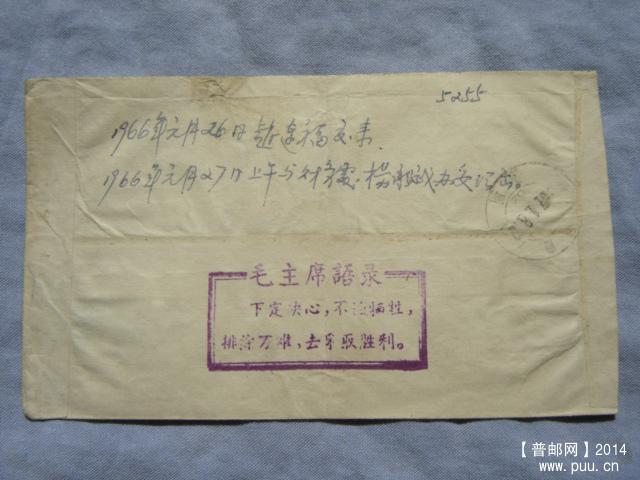 5255
1966年元月26日赵幸福交来.
1966年元月27日上午
毛主席語录
下定决心，不怕牺牲，
排除万难，去争取胜利。
【普邮网】2014
www.puu.cn